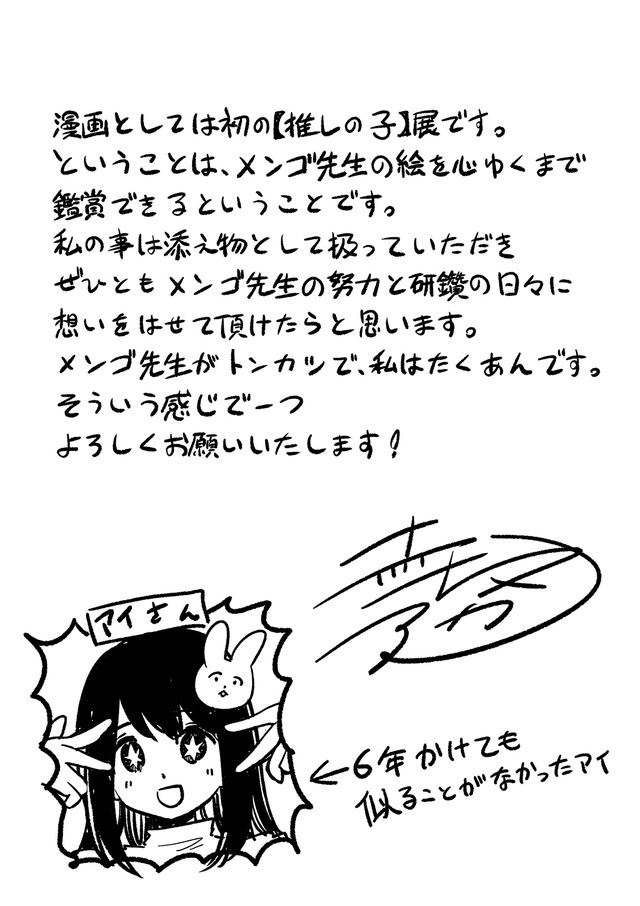 漫画としては初の【推しの子】展です。
ということは、メンゴ先生の絵を心ゆくまで
鑑賞できるということです。
私の事は添え物として扱っていただき
ぜひともメンゴ先生の努力と研鑽の日々に
想いをはせて頂けたらと思います。
メンゴ先生がトンカツで、私はたくあんです。
そういう感じで一つ
よろしくお願いいたします!
アイさん
←6年かけても
似ることがなかったアイ